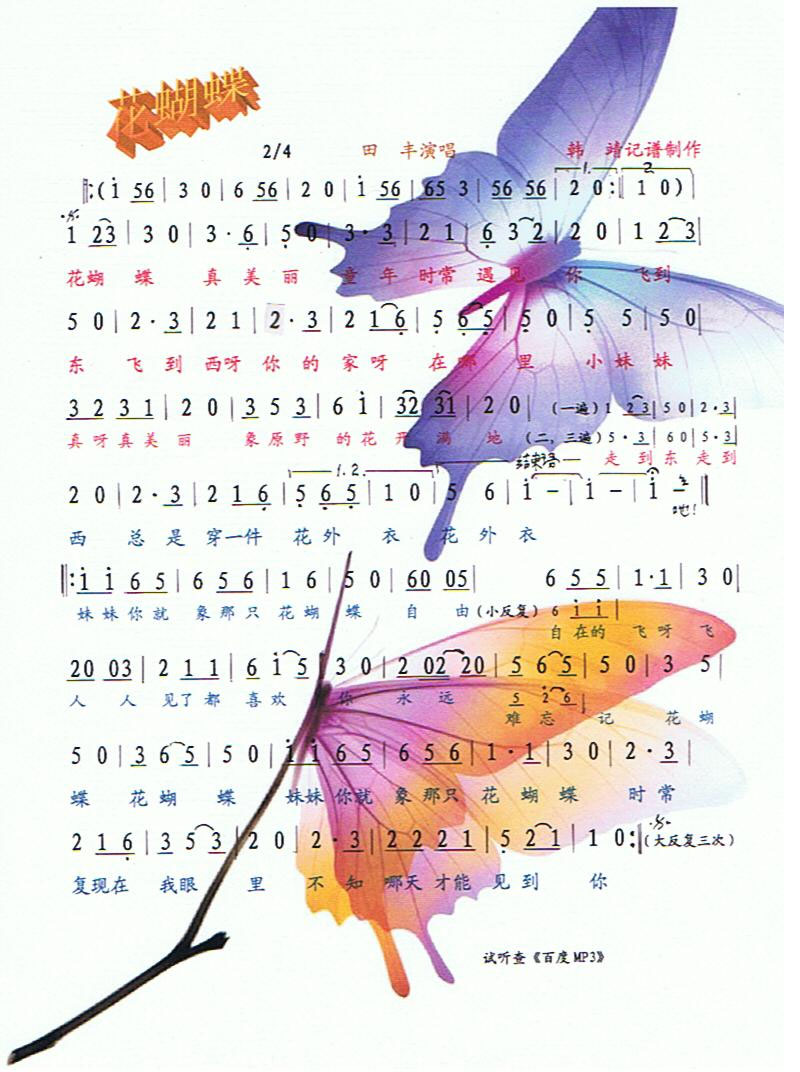 花蝴蝶
2/4 田 丰演唱 韩 靖记谱制作
1. 2.
‖:(i 56 | 3 0 | 6 56 | 2 0 | i 56 | 65 3 | 56 56 | 2 0 :‖ 1 0 )
1 23 | 3 0 | 3 · 6 | 5 0 | 3 · 3 | 2 1 | 6 3 2 | 2 0 | 1 2 3 |
花蝴 蝶 真 美 丽 童 年 时常 遇 见 你 飞到
5 0 | 2 · 3 | 2 1 | 2 · 3 | 2 1 6 | 5 6 5 | 5 0 | 5 5 | 5 0 |
东 飞 到 西呀 你 的 家呀 在哪 里 小 妹 妹
3 2 3 1 | 2 0 | 3 5 3 | 6 i | 32 31 | 2 0 | (一遍) 1 2 3 | 5 0 | 2 · 3 |
真 呀 真 美 丽 象 原 野 的 花 开 满 地 (二，三遍) 5 · 3 | 6 0 | 5 · 3 |
结束语 走 到 东 走 到
1. 2.
2 0 | 2 · 3 | 2 1 6 | 5 6 5 | 1 0 | 5 6 | i – | i – | i ‖
吔!
西 总 是 穿一件 花 外 衣 花 外 衣
‖: i i 6 5 | 6 5 6 | 1 6 | 5 0 | 60 05 | 6 5 5 | 1 · 1 | 3 0 |
妹 妹 你 就 象 那 只 花 蝴 蝶 自 由 (小反复) 6 i i |
自 在的 飞 呀 飞
20 03 | 2 1 1 | 6 i 5 | 3 0 | 2 02 20 | 5 6 5 | 5 0 | 3 5 |
人 人 见了 都 喜 欢 你 永 远 5 2 6 |
难 忘 记 花 蝴
5 0 | 3 6 5 | 5 0 | i i 6 5 | 6 5 6 | 1 · 1 | 3 0 | 2 · 3 |
蝶 花 蝴 蝶 妹妹 你就 象 那只 花 蝴 蝶 时 常
2 1 6 | 3 5 3 | 2 0 | 2 · 3 | 2 2 2 1 | 5 2 1 | 1 0 :‖ (大反复三次)
复现在 我眼 里 不 知 哪天 才能 见 到 你
试听查《百度 MP3》